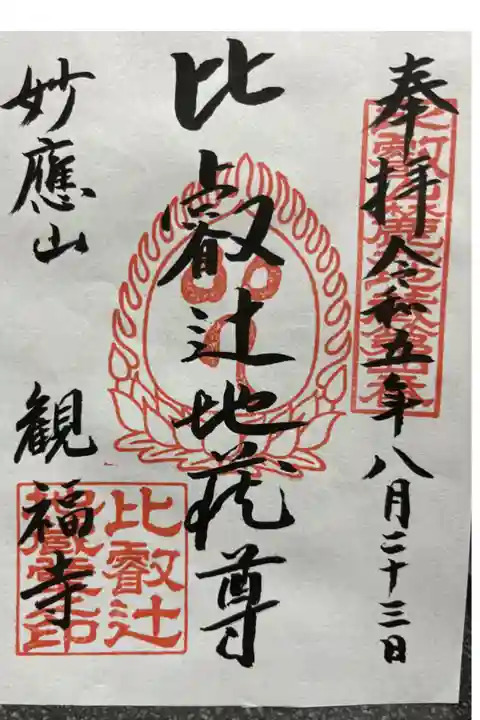 奉拝 令和五年八月二十三日
比叡辻地蔵尊
妙應山 観福寺
比叡辻
地蔵堂印